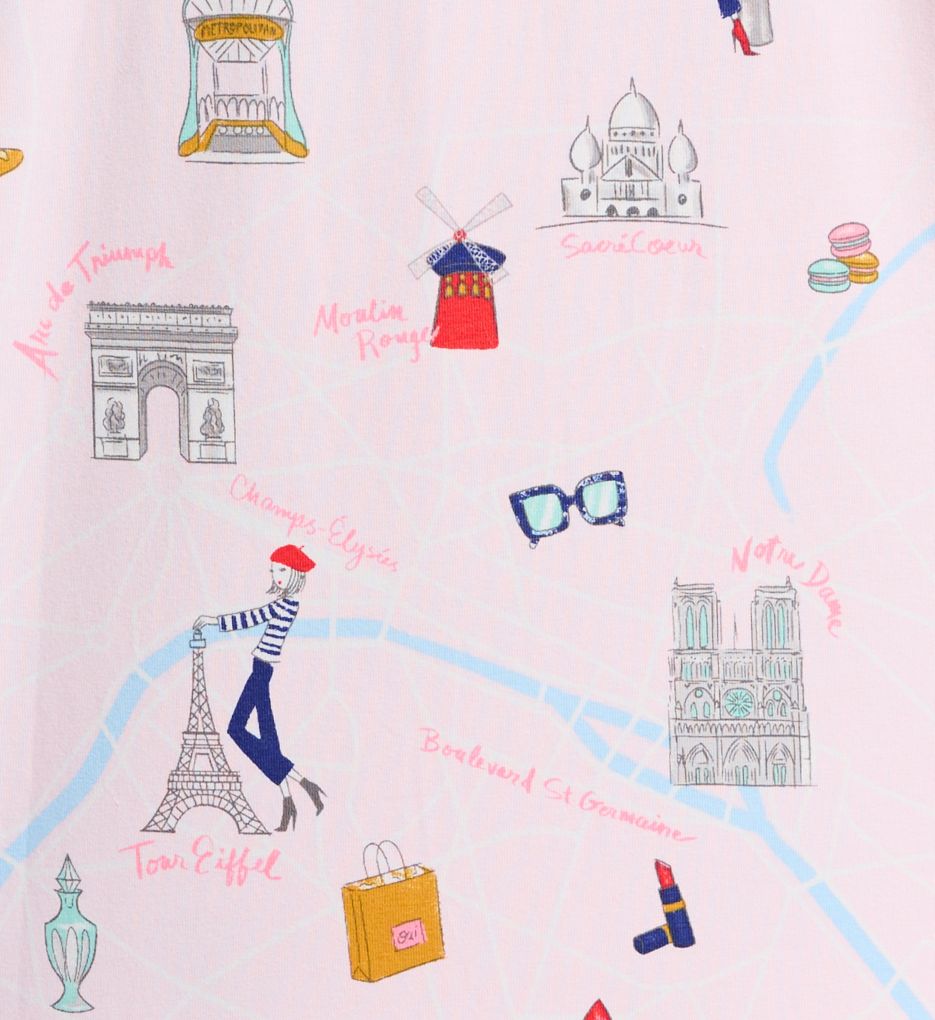 METROPOLITAN
Sacré Coeur
Arc de Triumph
Moulin
Rouge
Champs-Élysées
Notre Dame
Boulevard St Germaine
Tour Eiffel
Oui